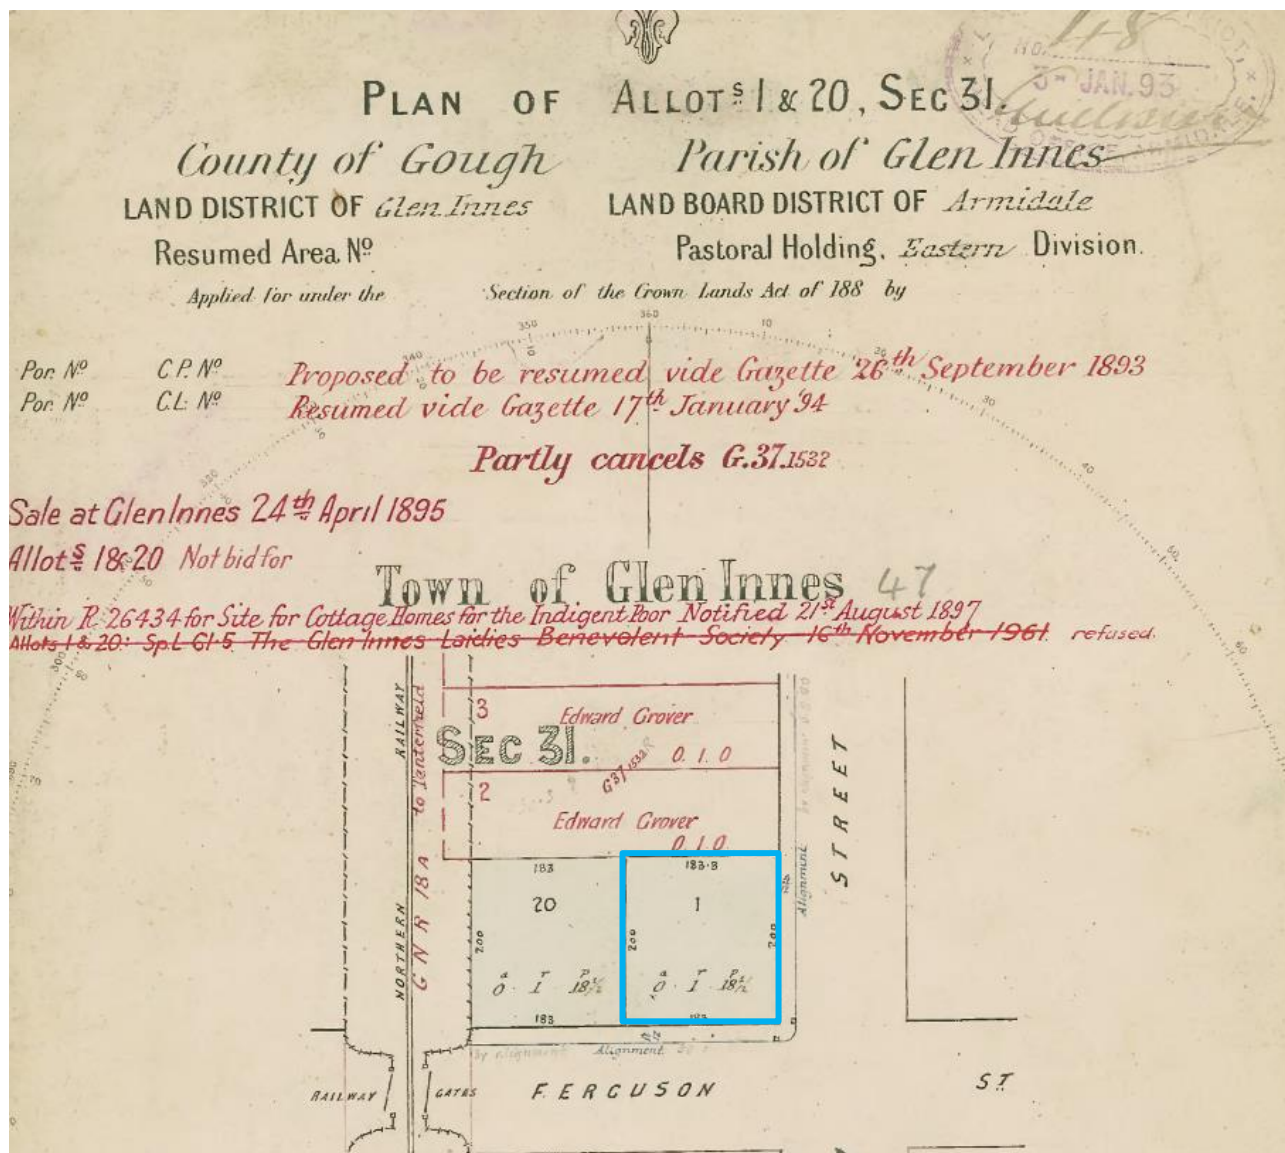 No. 148
3- JAN. 93
PLAN OF ALLOTS 1 & 20, SEC 31.
County of Gough Parish of Glen Innes
LAND DISTRICT OF Glen Innes LAND BOARD DISTRICT OF Armidale
Resumed Area Nº Pastoral Holding, Eastern Division.
Applied for under the Section of the Crown Lands Act of 188 by
350 360 10
340 20
Por. Nº C.P. Nº Proposed to be resumed vide Gazette 26th September 1893
Por. Nº C.L. Nº Resumed vide Gazette 17th January '94
30
Partly cancels G.37.1532
40
320
Sale at Glen Innes 24th April 1895
Allots 1&20 Not bid for
50
Town of Glen Innes 47
Within R. 26434 for Site for Cottage Homes for the Indigent Poor Notified 21st August 1897
Allots 1 & 20: Sp.L 61·5 The Glen Innes Laidies Benevolent Society 16th November 1961. refused.
300 60
3 Edward Grover
SEC 31.
G37.1532 0. 1. 0
70
2
Edward Grover
0. 1. 0
NORTHERN RAILWAY
G N R 18A to Tenterfield
STREET
Alignment
183 183·3
20 1
200 200 200
a r p a r p
0 · 1 · 18½ 0 · 1 · 18½
183 183
By alignment Alignment
RAILWAY GATES FERGUSON ST